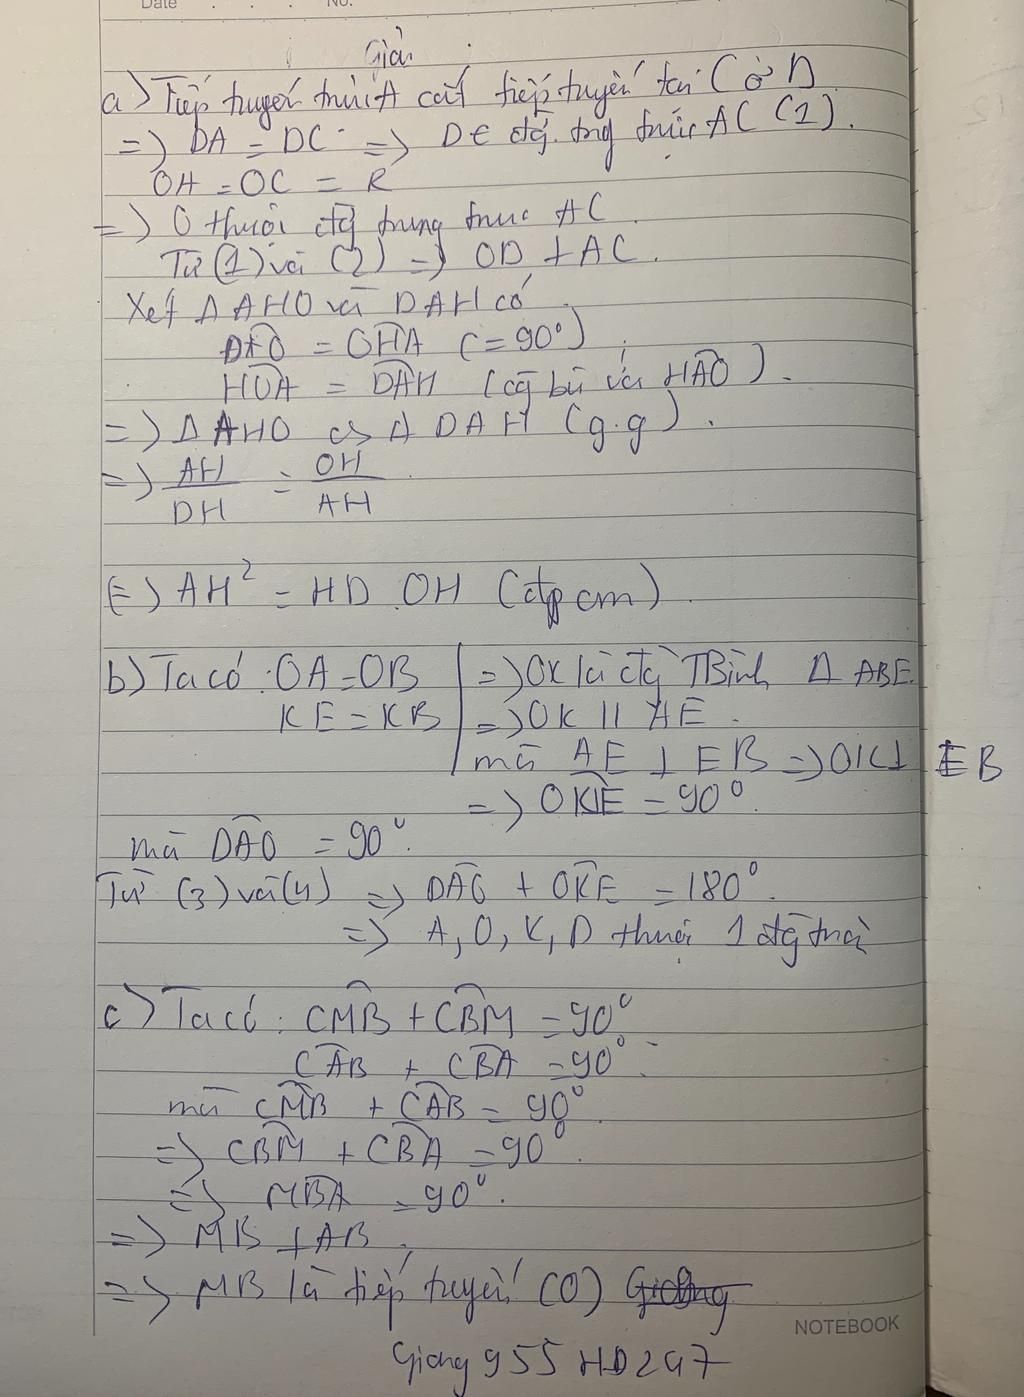 Date . . . No.
Giải
a) Tiếp tuyến từ A cắt tiếp tuyến tại C ở D
=> DA = DC => D ∈ đg. trg trực AC (1).
OH = OC = R
=> O thuộc đg trung trực AC
Từ (1) và (2) => OD ⊥ AC.
Xét Δ AHO và DAH có
DAO = OHA (= 90°)
HOA = DAH (cg bù với HAO).
=> Δ AHO ∽ Δ DAH (g.g).
=> AH/DH = OH/AH
=> AH² = HD.OH (đpcm)
b) Ta có: OA = OB | => OK là đg TBình Δ ABE
KE = KB | => OK // AE.
mà AE ⊥ EB => OK ⊥ EB
=> OKE = 90°.
mà DAO = 90°.
Từ (3) và (4) => DAO + OKE = 180°.
=> A, O, K, D thuộc 1 đg tròn
c) Ta có: CMB + CBM = 90°
CAB + CBA = 90°
mà CMB + CAB = 90°
=> CBM + CBA = 90°.
=> MBA = 90°.
=> MB ⊥ AB,
=> MB là tiếp tuyến (O)
NOTEBOOK
Giang 955 HD247